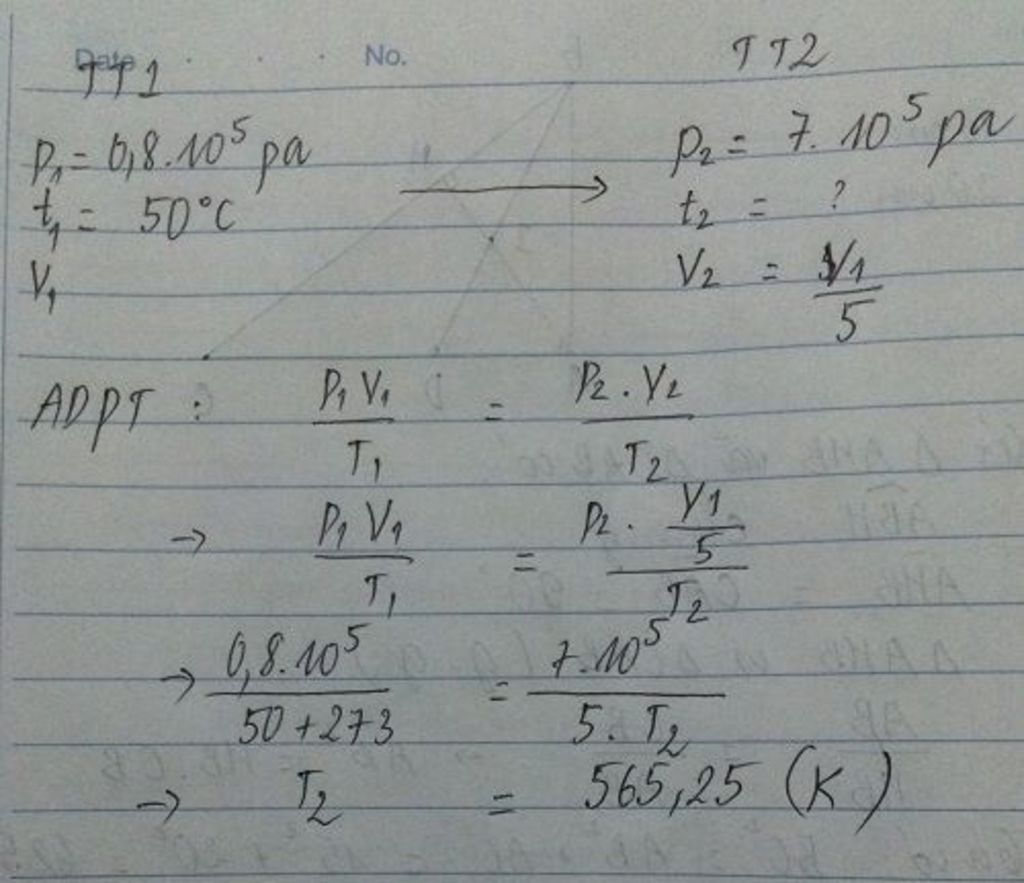 Date No.
TT1 TT2
p₁ = 0,8.10⁵ pa → p₂ = 7.10⁵ pa
t₁ = 50°C t₂ = ?
V₁ V₂ = V₁/5
ADPT : P₁V₁/T₁ = P₂.V₂/T₂
→ P₁V₁/T₁ = (P₂.V₁/5)/T₂
→ 0,8.10⁵/(50+273) = 7.10⁵/(5.T₂)
→ T₂ = 565,25 (K)